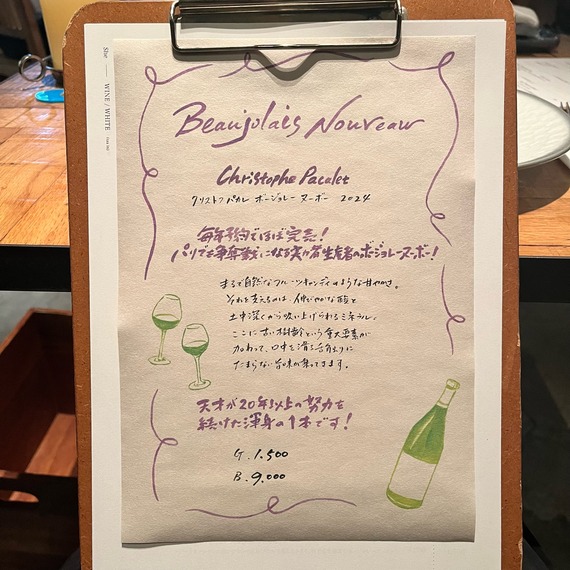 She WINE / WHITE
Beaujolais Nouveau
Christophe Pacalet
クリストフ パカレ ボージョレー ヌーボー 2024
毎年予約でほぼ完売!
パリでも争奪戦になる実力名生産者のボジョレーヌーボー!
まるで自然なフルーツキャンディのような甘やかさ。
それを支えるのは、伸びやかな酸と
土中深くから吸い上げられるミネラル。
ここに古い樹齢という重大要素が
加わって、口中を滑る舌触りに
たまらない旨味が乗ってきます。
天才が20年以上の努力を
続けた渾身の1本です!
G. 1,500
B. 9,000